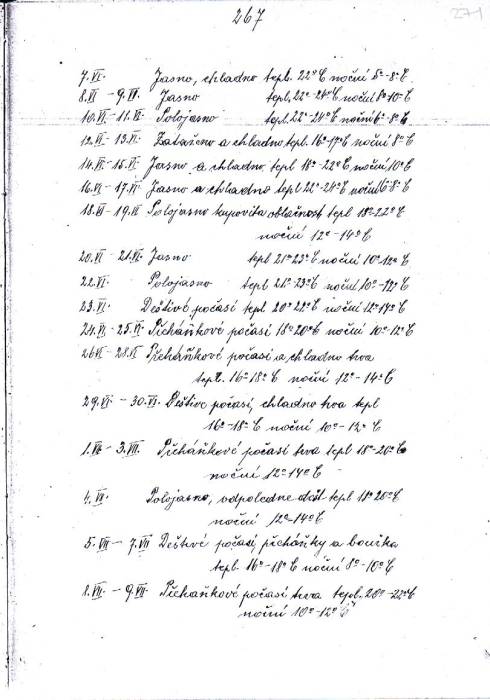 267
271
7.VI. Jasno, chladno tepl. 22° C noční 5°-8° C
8.VI - 9.VI. Jasno tepl. 22°-24° C noční 8°10° C
10.VI - 11.VI. Polojasno tepl. 22°-24° C noční 6°-8° C
12.VI - 13.VI. Zataženo a chladno tepl. 16°-17° C noční 8° C
14.VI - 15.VI Jasno a chladno, tepl 18°-22° C noční 10° C
16.VI - 17.VI Jasno a chladno tepl 22°-24° C noční 6°8° C
18.VI - 19.VI Polojasno kupovitá oblačnost tepl 18°22° C
noční 12°-14° C
20.VI - 21.VI Jasno tepl 21°23° C noční 10°12° C
22.VI. Polojasno tepl 21°-23° C noční 10°-12° C
23.VI. Deštivé počasí tepl 20°22° C noční 12°14° C
24.VI - 25.VI. Přeháňkové počasí 18°20° C noční 10°-12° C
26.VI - 28.VI Přeháňkové počasí a chladno trva
tepl. 16°18° C noční 12°-14° C
29.VI - 30.VI. Deštive počasí, chladno trva tepl
16°-18° C noční 10°-12° C
1.VII - 3.VII. Přeháňkové počasí trva tepl 18°-20° C
noční 12°14° C
4.VII. Polojasno, odpoledne dešť tepl 18°20° C
noční 12°-14° C
5.VII - 7.VII Deštivé počasí přeháňky a bouřka
tepl. 16°-18° C noční 8°-10° C
8.VII. - 9.VII. Přeháňkové počasí trva tepl. 20°-22° C
noční 10°-12° C